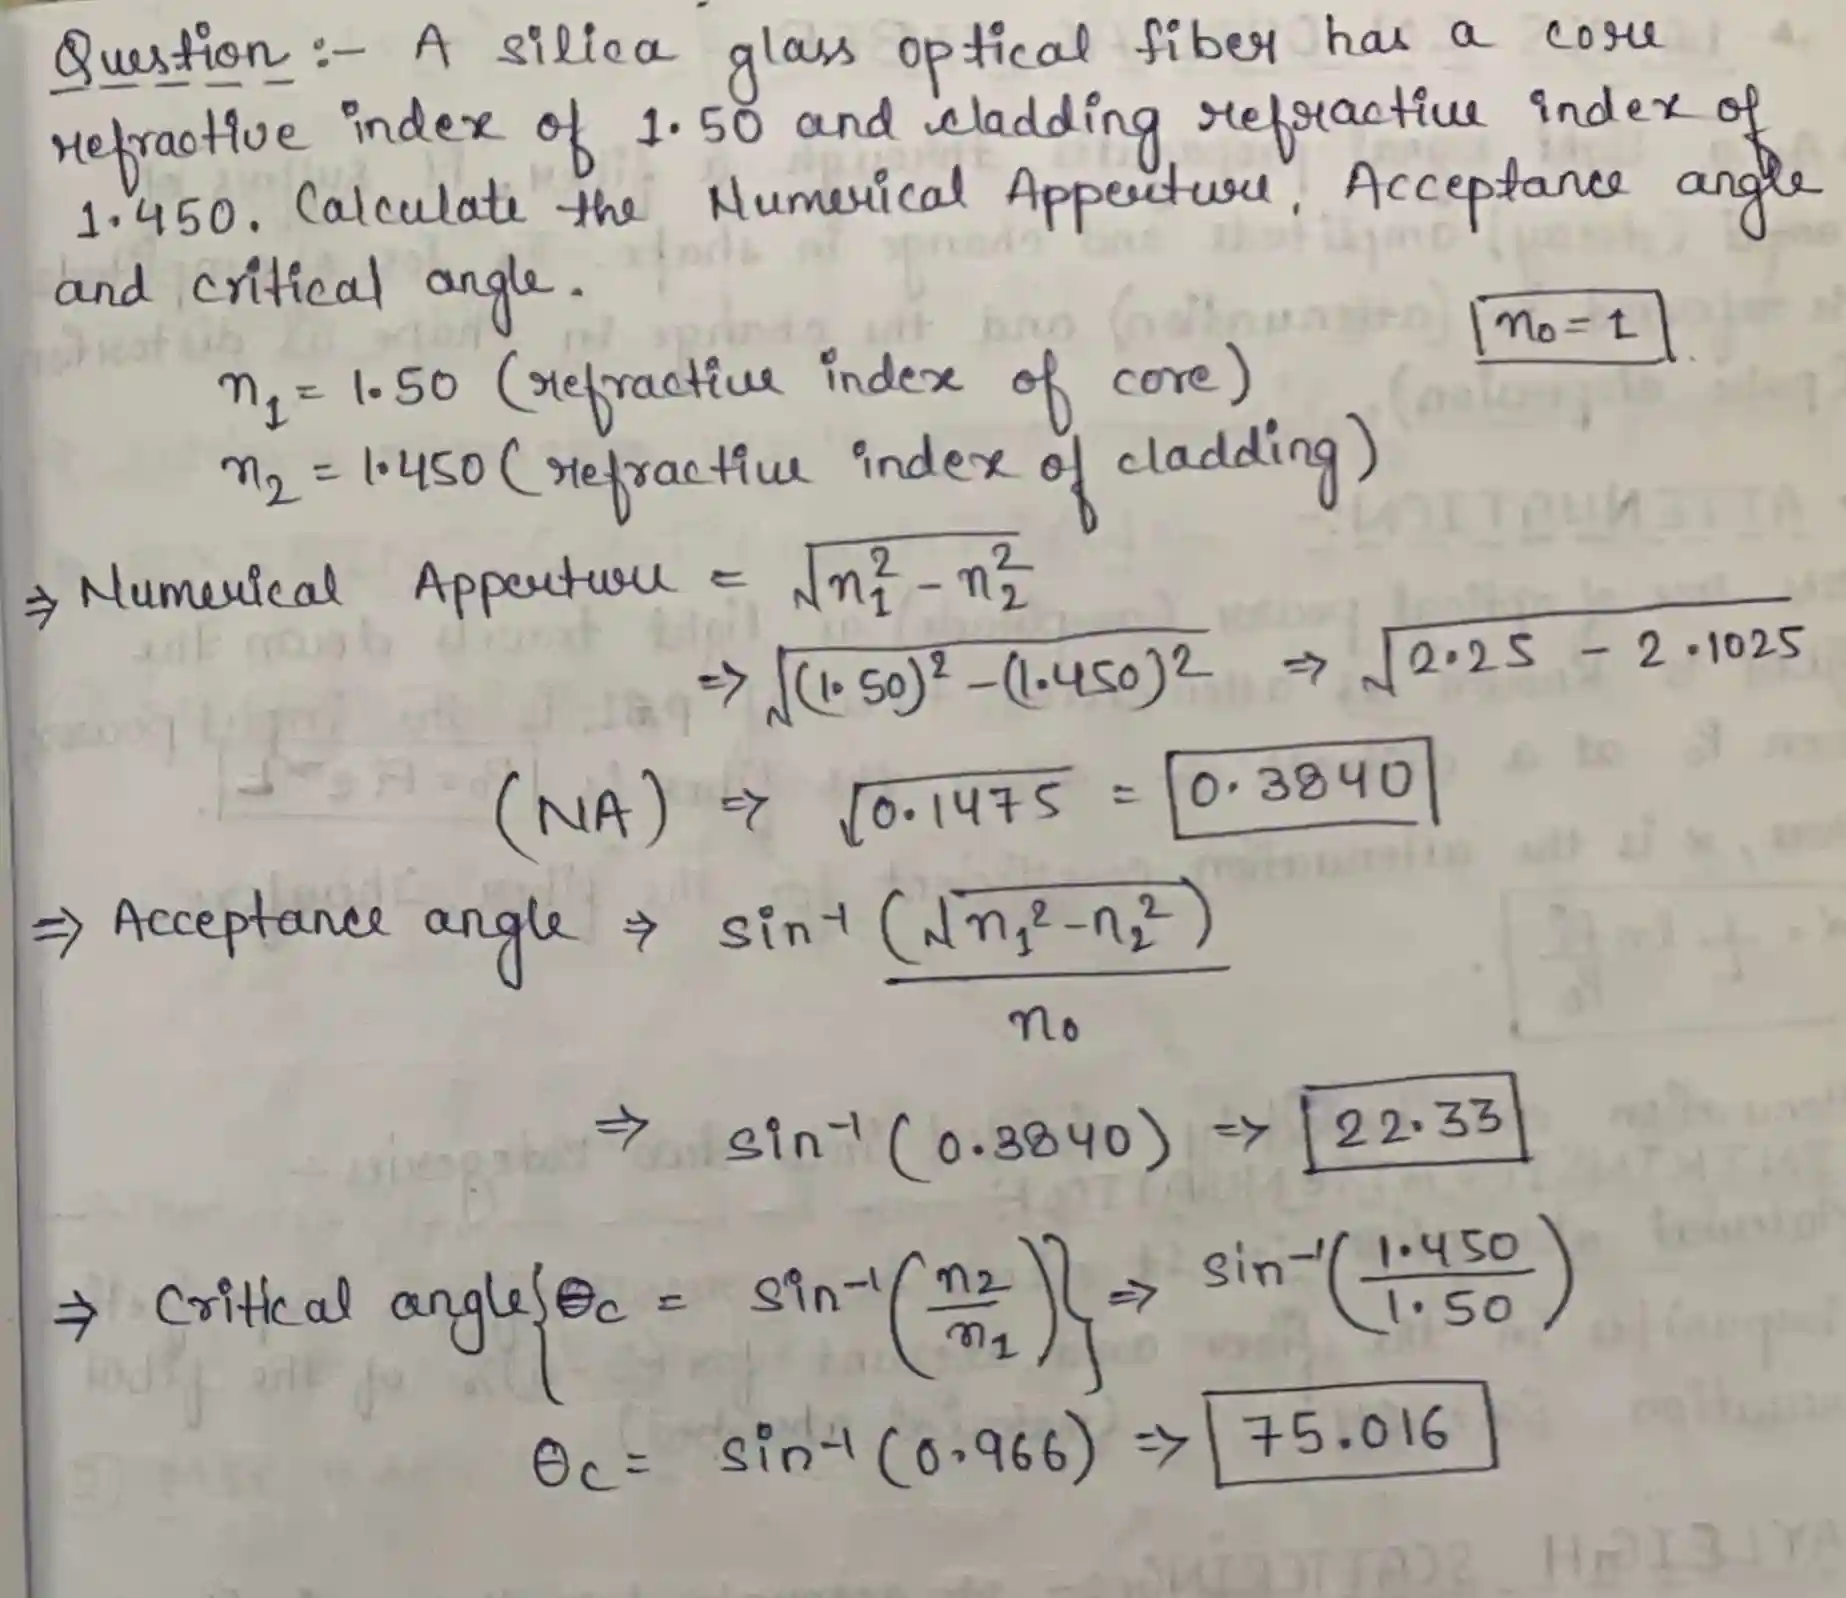 Question :- A silica glass optical fiber has a core
refractive index of 1.50 and cladding refractive index of
1.450. Calculate the Numerical Apperture, Acceptance angle
and critical angle.
n₀ = 1
n₁ = 1.50 (refractive index of core)
n₂ = 1.450 (refractive index of cladding)
⇒ Numerical Apperture = √n₁² - n₂²
⇒ √(1.50)² - (1.450)² ⇒ √2.25 - 2.1025
(NA) ⇒ √0.1475 = 0.3840
⇒ Acceptance angle ⇒ sin⁻¹ (√n₁² - n₂²)
n₀
⇒ sin⁻¹ (0.3840) ⇒ 22.33
⇒ Critical angle {θc = sin⁻¹ (n₂/n₁)} ⇒ sin⁻¹ (1.450/1.50)
θc = sin⁻¹ (0.966) ⇒ 75.016